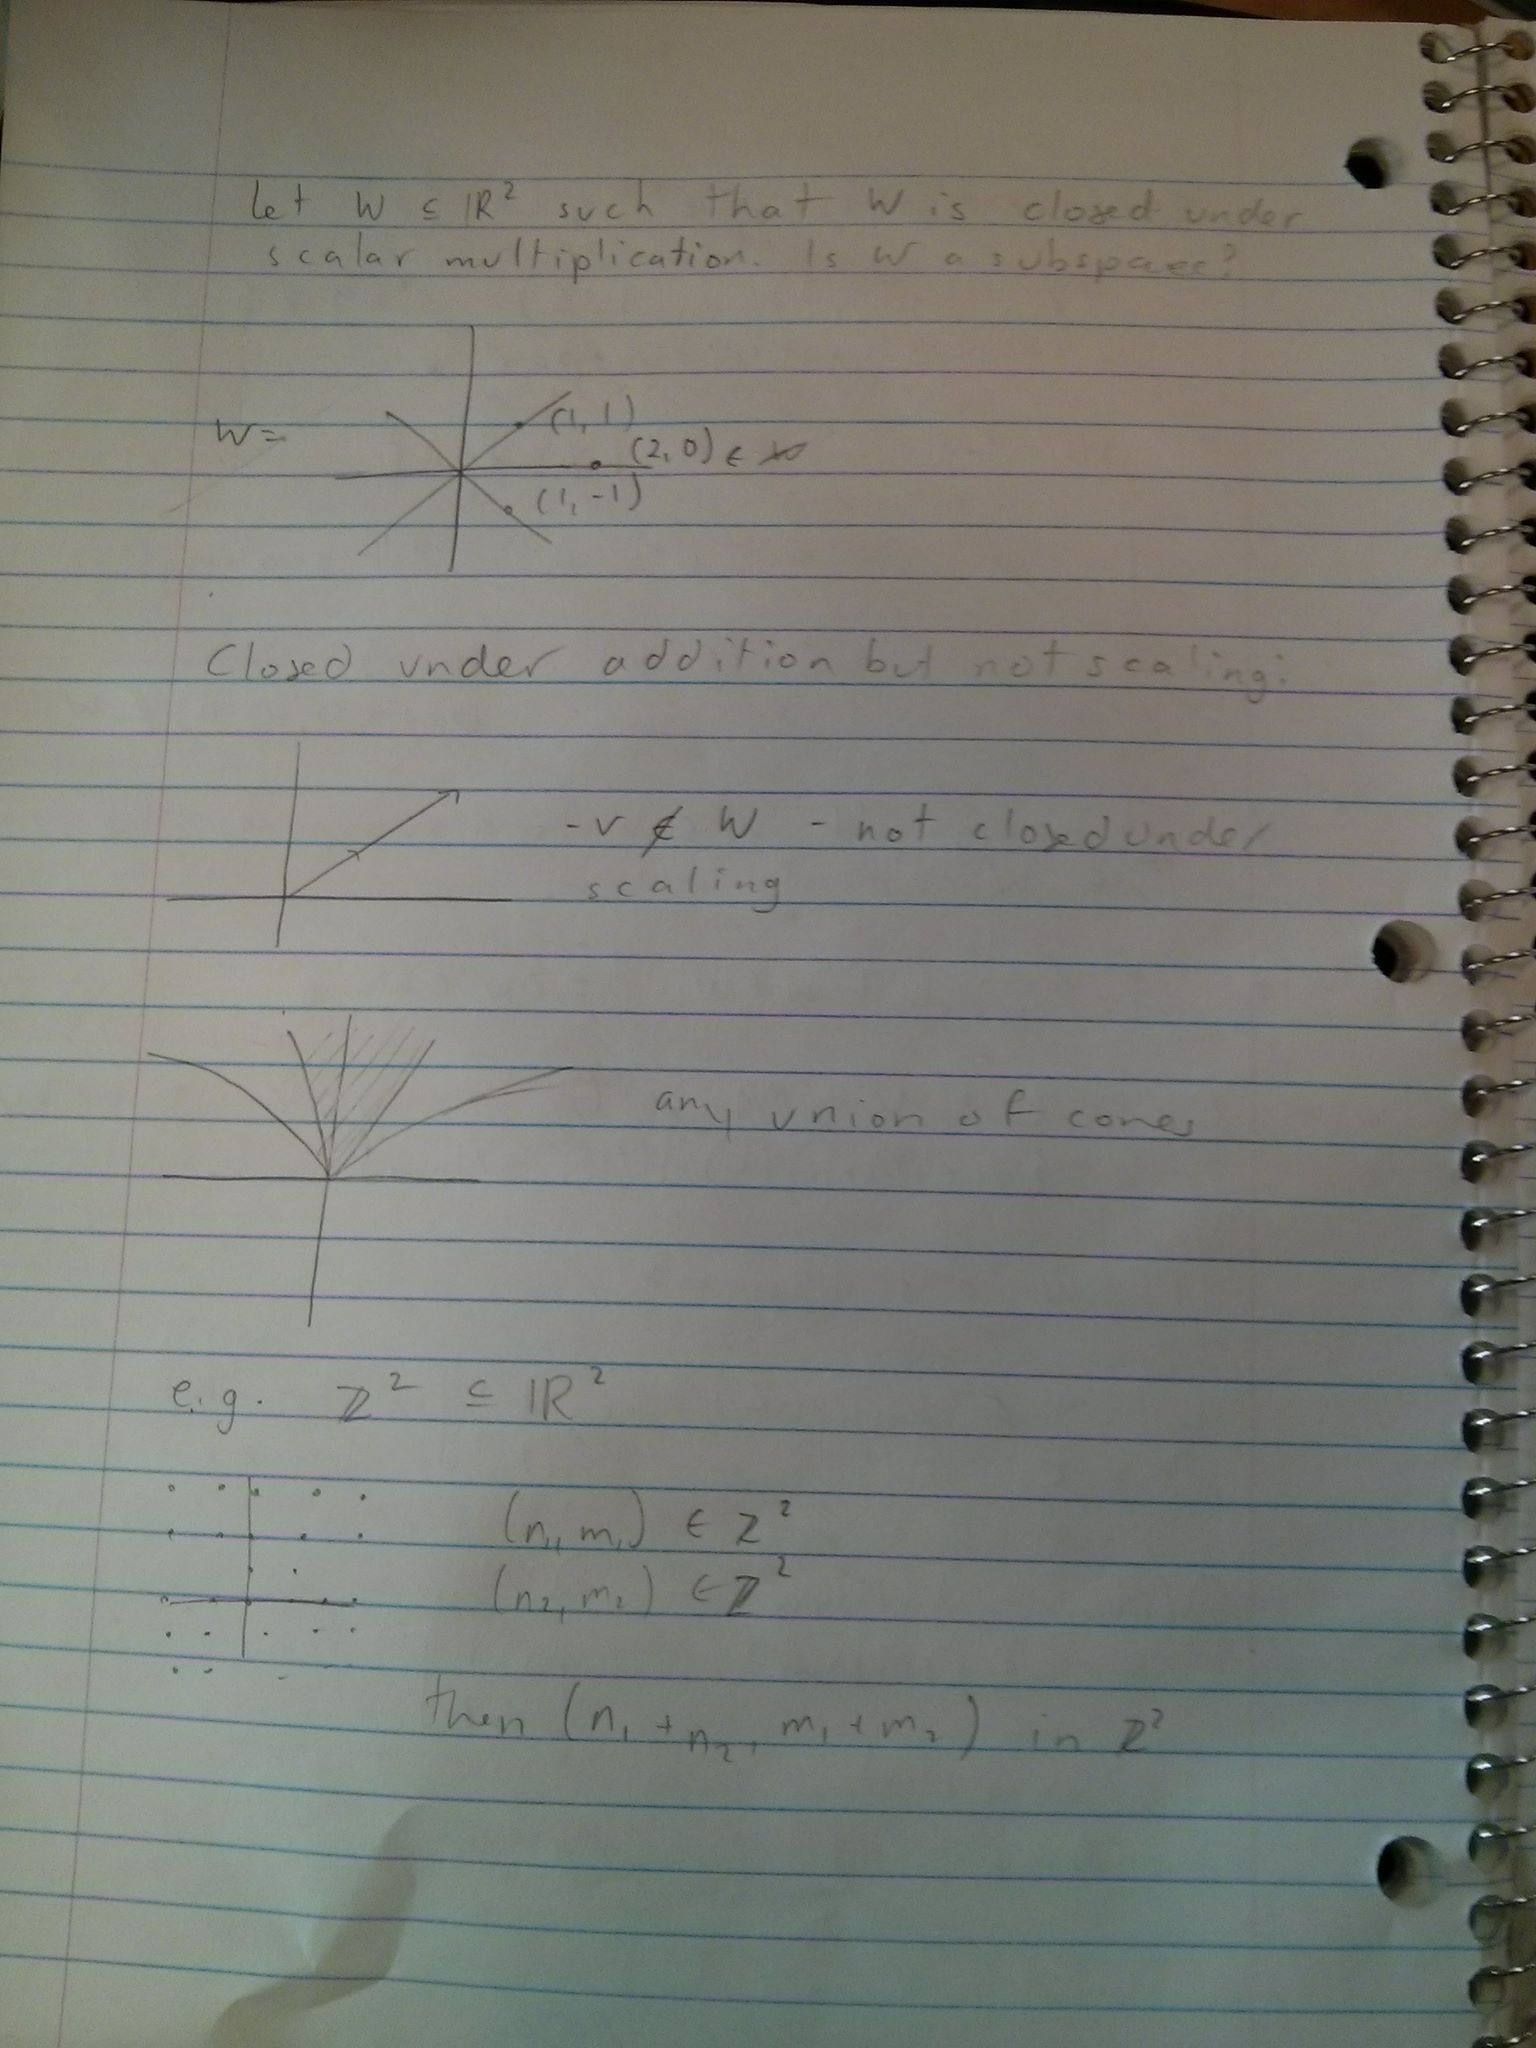 Let W ⊆ ℝ² such that W is closed under
scalar multiplication. Is W a subspace?
W =
(1, 1)
(2, 0) ∈ W
(1, -1)
Closed under addition but not scaling:
-v ∉ W - not closed under
scaling
any union of cones
e.g. ℤ² ⊆ ℝ²
(n₁, m₁) ∈ ℤ²
(n₂, m₂) ∈ ℤ²
then (n₁ + n₂, m₁ + m₂) in ℤ²